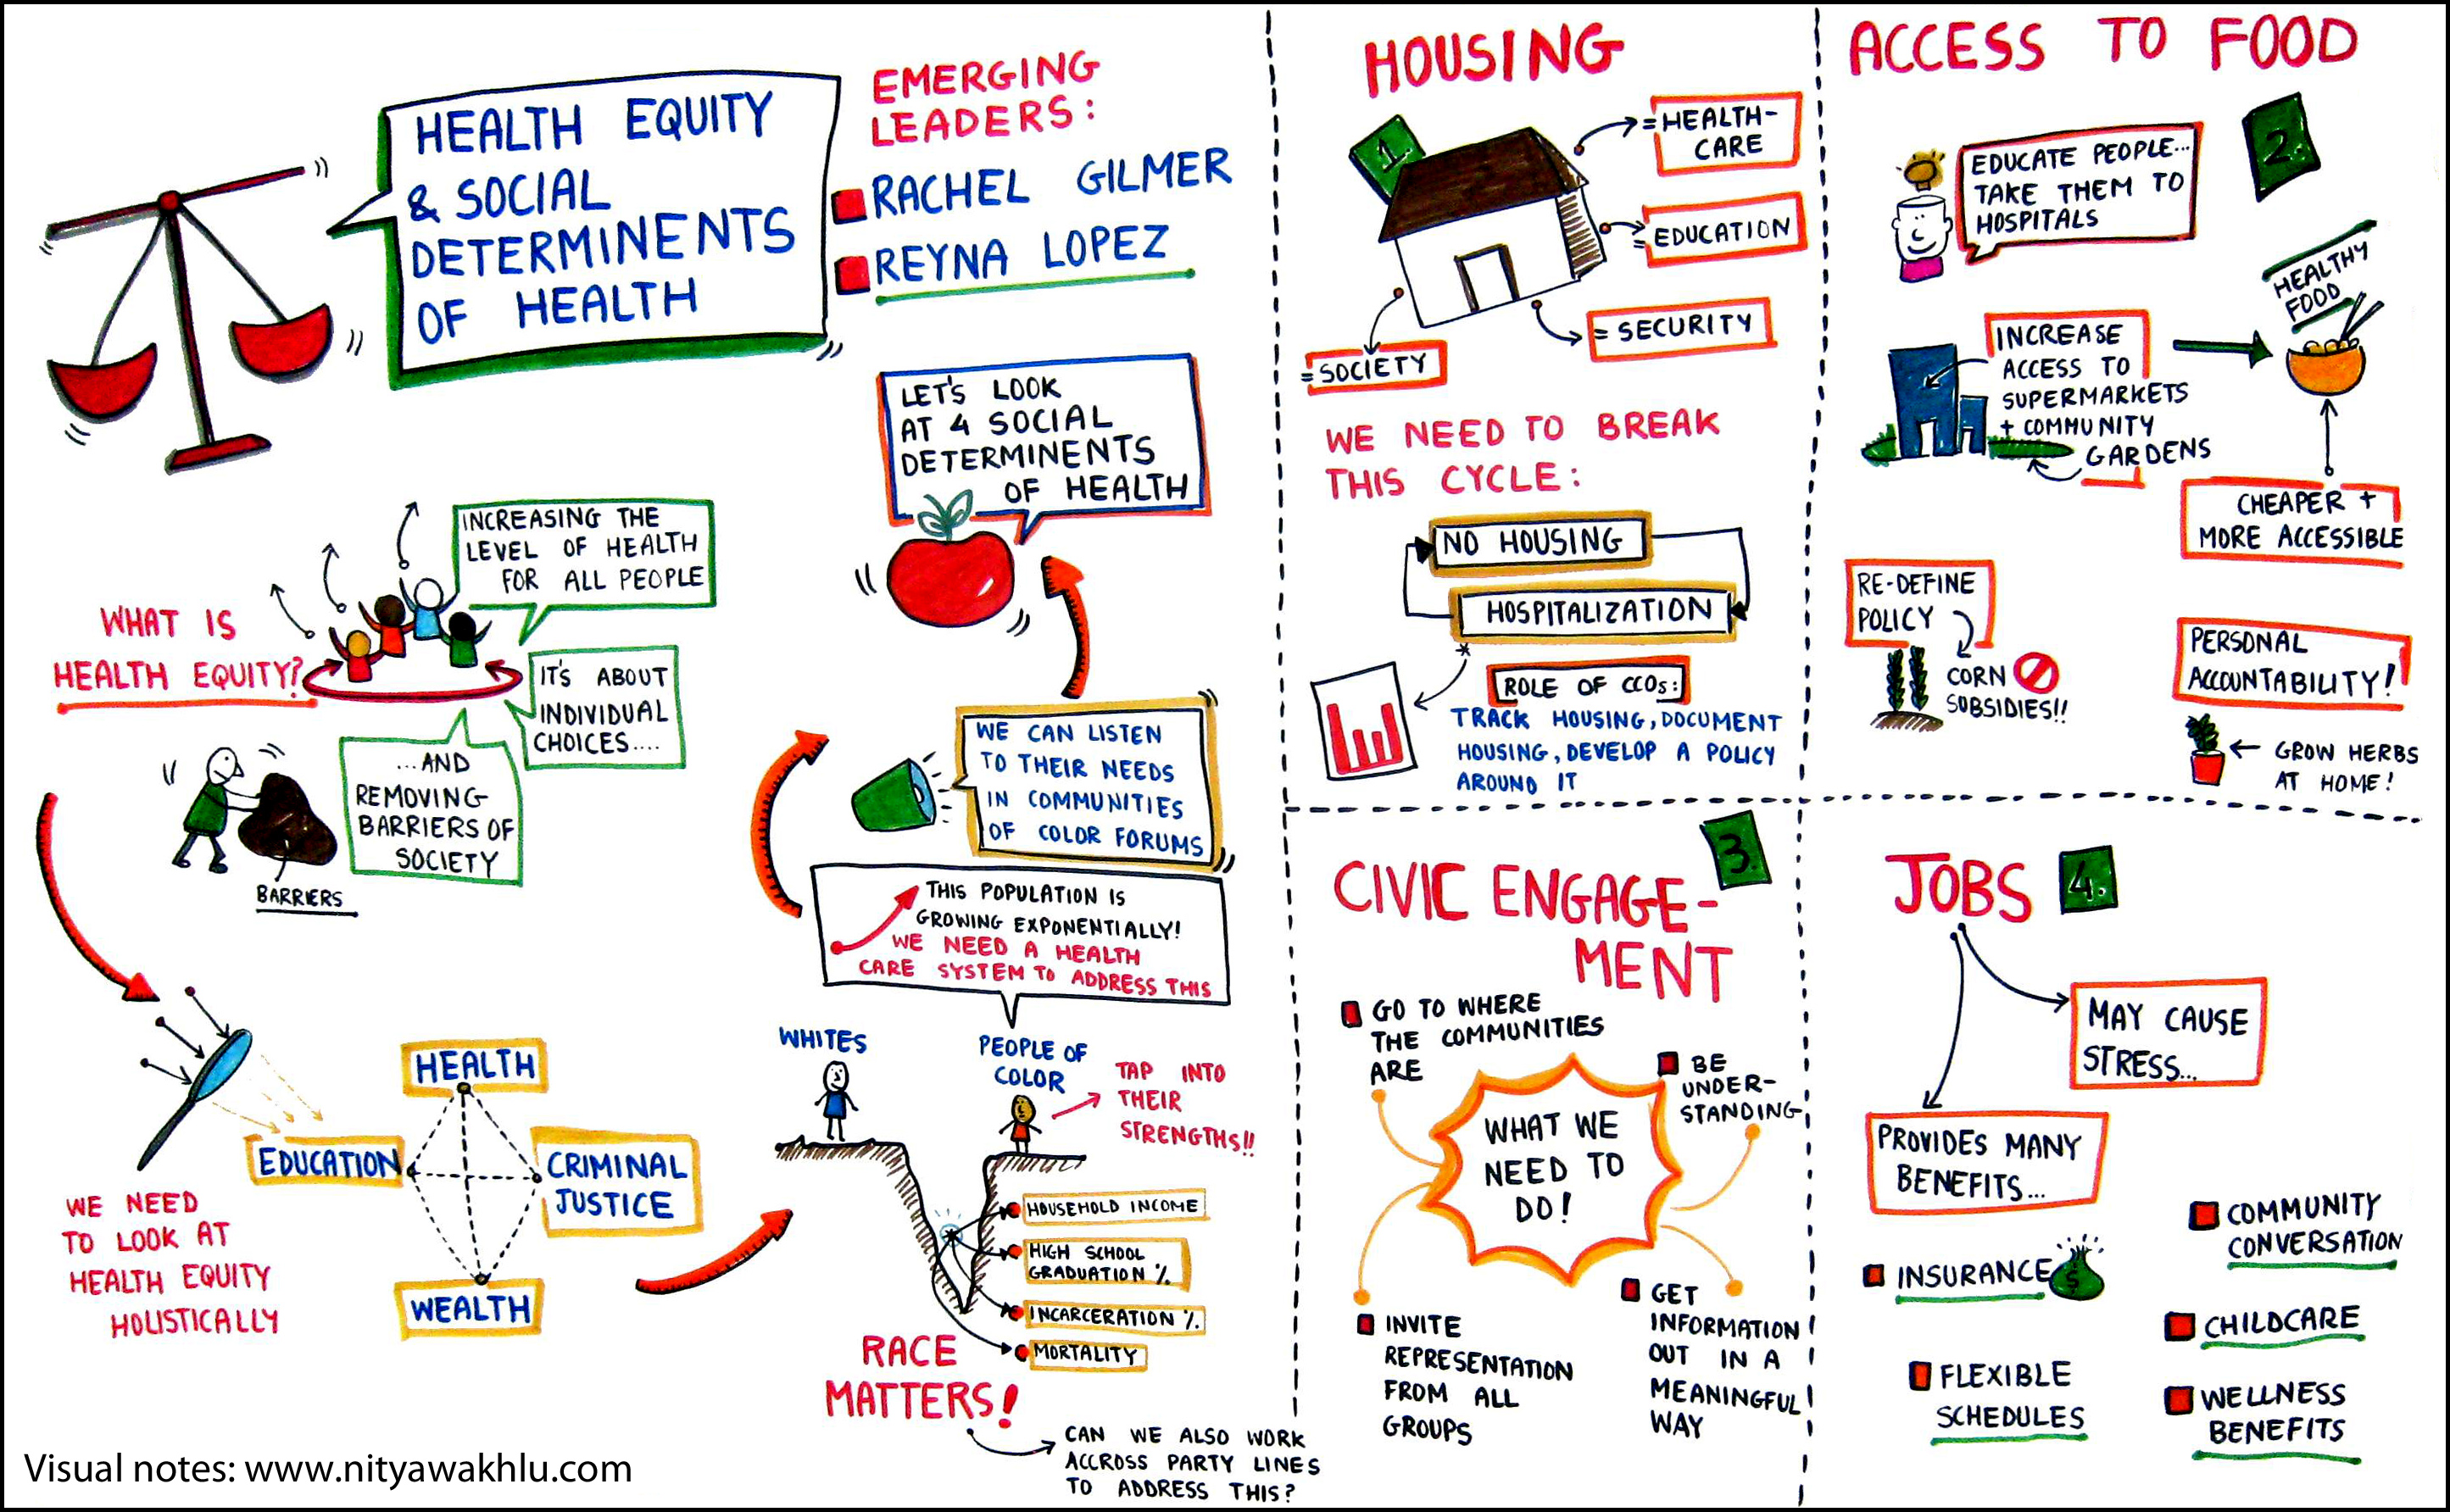 HEALTH EQUITY
& SOCIAL
DETERMINENTS
OF HEALTH
EMERGING
LEADERS:
RACHEL GILMER
REYNA LOPEZ
LET'S LOOK
AT 4 SOCIAL
DETERMINENTS
OF HEALTH
WHAT IS
HEALTH EQUITY?
INCREASING THE
LEVEL OF HEALTH
FOR ALL PEOPLE
IT'S ABOUT
INDIVIDUAL
CHOICES....
...AND
REMOVING
BARRIERS OF
SOCIETY
BARRIERS
WE NEED
TO LOOK AT
HEALTH EQUITY
HOLISTICALLY
HEALTH
EDUCATION
CRIMINAL
JUSTICE
WEALTH
WE CAN LISTEN
TO THEIR NEEDS
IN COMMUNITIES
OF COLOR FORUMS
THIS POPULATION IS
GROWING EXPONENTIALLY!
WE NEED A HEALTH
CARE SYSTEM TO ADDRESS THIS
WHITES
PEOPLE OF
COLOR
TAP INTO
THEIR
STRENGTHS!!
HOUSEHOLD INCOME
HIGH SCHOOL
GRADUATION %
INCARCERATION %
MORTALITY
RACE
MATTERS!
CAN WE ALSO WORK
ACCROSS PARTY LINES
TO ADDRESS THIS?
Visual notes: www.nityawakhlu.com
HOUSING
1.
= HEALTH-
CARE
= EDUCATION
= SECURITY
= SOCIETY
WE NEED TO BREAK
THIS CYCLE:
NO HOUSING
HOSPITALIZATION
*
ROLE OF CCOs:
TRACK HOUSING, DOCUMENT
HOUSING, DEVELOP A POLICY
AROUND IT
ACCESS TO FOOD
2.
EDUCATE PEOPLE...
TAKE THEM TO
HOSPITALS
HEALTHY
FOOD
INCREASE
ACCESS TO
SUPERMARKETS
+ COMMUNITY
GARDENS
CHEAPER +
MORE ACCESSIBLE
RE-DEFINE
POLICY
CORN
SUBSIDIES!!
PERSONAL
ACCOUNTABILITY!
GROW HERBS
AT HOME!
CIVIC ENGAGE-
MENT
3.
GO TO WHERE
THE COMMUNITIES
ARE
BE
UNDER-
STANDING
WHAT WE
NEED TO
DO!
INVITE
REPRESENTATION
FROM ALL
GROUPS
GET
INFORMATION
OUT IN A
MEANINGFUL
WAY
JOBS
4.
MAY CAUSE
STRESS...
PROVIDES MANY
BENEFITS...
INSURANCE
$
FLEXIBLE
SCHEDULES
COMMUNITY
CONVERSATION
CHILDCARE
WELLNESS
BENEFITS